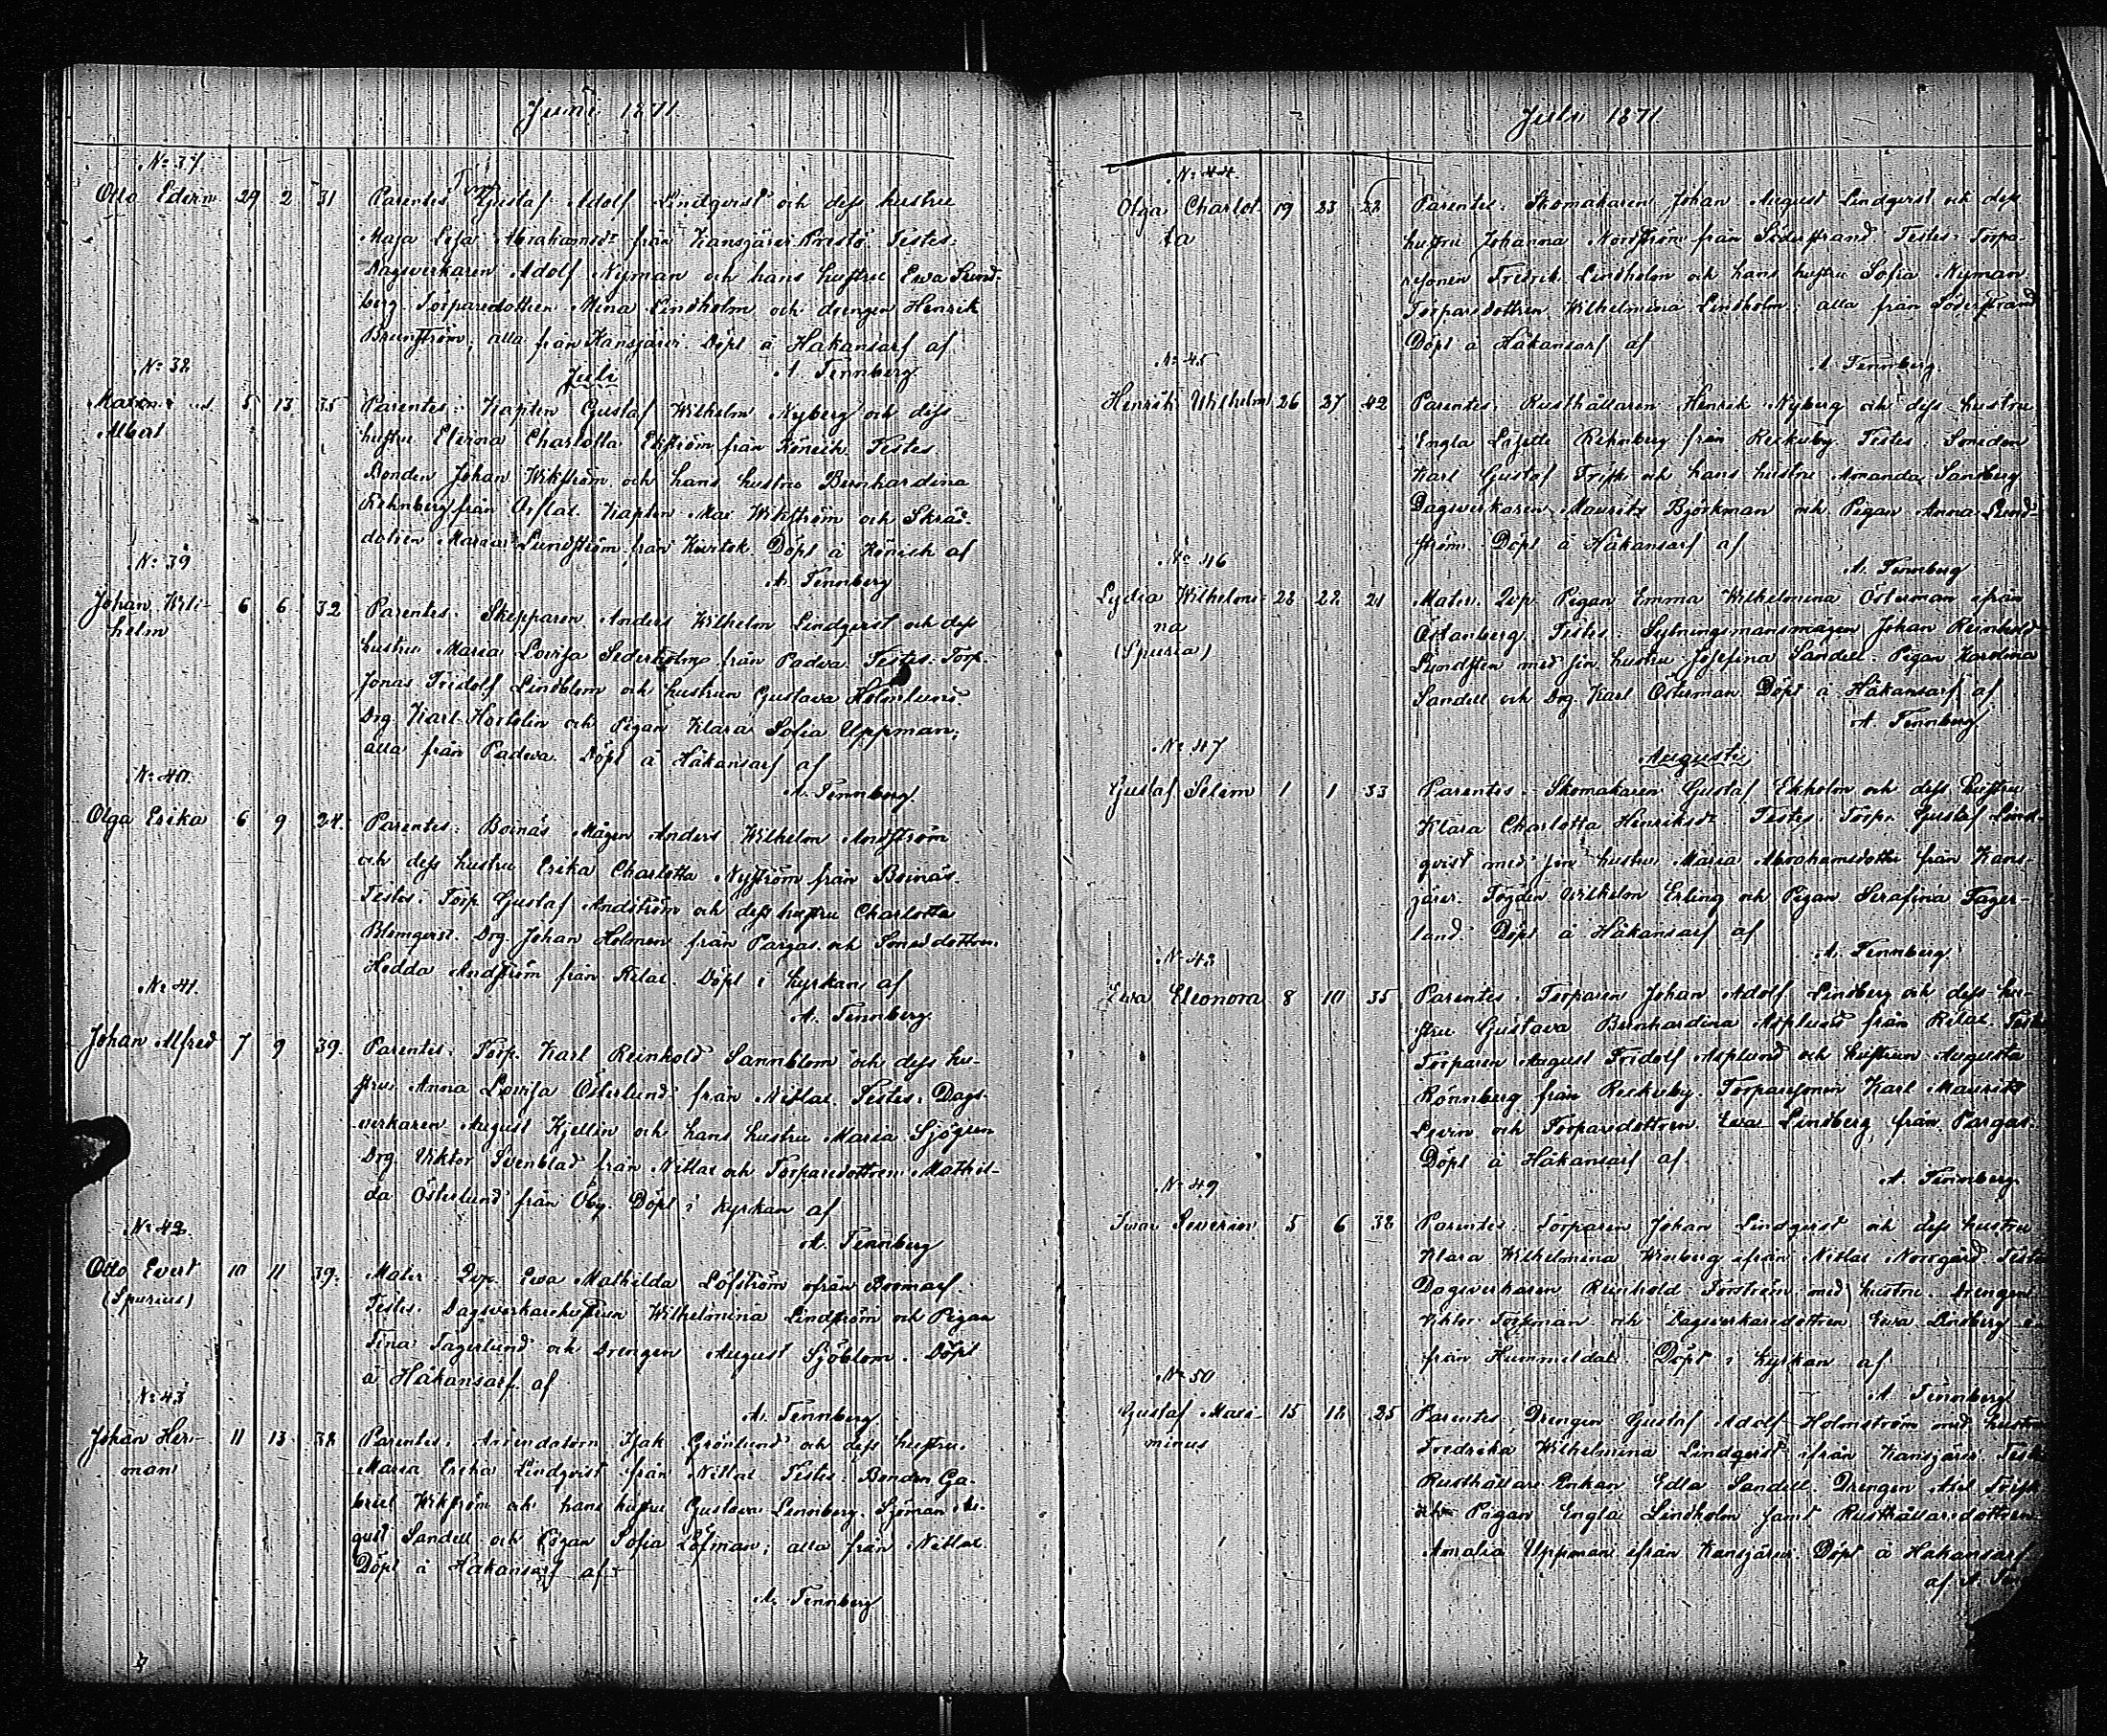 Juni 1871.
No 37
Otto Edvin 29 2 31 Parentes Torp. Gustaf Adolf Lindqvist och dess hustru
Maja Lisa Abrahamsdr från Kansjärvi Testes:
Dagsverkaren Adolf Nyman och hans hustru Ewa Sund-
berg Torparedottren Mina Lindholm och drengen Henrik
Brunström, alla från Kansjärvi. Döpt å Håkansarf af
A. Tennberg
Juli
No 38
Albert 5 13 35 Parentes: Kapten Gustaf Wilhelm Nyberg och dess
hustru Charlotta Ekström från Könich Testes
Bonden Johan Wikström och hans hustru Bernhardina
Rehnberg från Kapten Wikström och
Lundström från Döpt å Könich af
A. Tennberg
No 39
Johan Wil- 6 6 32 Parentes: Skepparen Anders Wilhelm Lindqvist och dess
helm
hustru Maria Lovisa Sederholm från Padva Testes: Torp.
Jonas Fridolf Lindblom och hustrun Gustava Holmlund.
Drg. Karl och Pigan Klara Sofia Uppman;
alla från Padva. Döpt å Håkansarf af
A. Tennberg.
No 40.
Olga Erika 6 9 24. Parentes: Boinäs Mågen Anders Wilhelm Andström
och dess hustru Erika Charlotta Nyström från Boinäs.
Testes: Torp. Gustaf Andström och dess hustru Charlotta
Blomqvist. Drg. Johan Holmen från Pargas och Smeddottren
Hedda Andström från Rilax. Döpt i kyrkan af
A. Tennberg.
No 41.
Johan Alfred 7 9 39. Parentes: Torp. Karl Reinhold Sannblom och dess hu-
stru Anna Lovisa Österlund från Nitlax. Testes: Dags-
verkaren August Kjellin och hans hustru Maria Sjögren
Drg. Viktor Svenblad från Nitlax och Torparedottren Mathil-
da Österlund från Öby. Döpt i kyrkan af
A. Tennberg
No 42.
Otto Evert 10 11 39. Mater: Qvp. Ewa Mathilda Löfström från Bromarf.
(Spurius)
Testes: Dagsverkarehustrun Wilhelmina Lindström och Pigan
Tina Fagerlund och Drengen August Sjöblom. Döpt
å Håkansarf af
A. Tennberg
No 43
Johan Her- 11 13 38 Parentes: Arrendatorn Isak Grönlund och dess hustru.
man
Maria Erika Lindqvist från Nitlax Testes: Bonden Ga-
briel Wikström och hans hustru Gustava Lennberg. Sjöman Au-
gust Sandell och Pigan Sofia Löfman, alla från Nitlax.
Döpt å Håkansarf af
A. Tennberg
Juli 1871
No 44
Olga Charlot- 19 23 22 Parentes: Skomakaren Johan August Lindqvist och dess
ta
hustru Johanna Nordström från Söderstrand Testes: Torpa-
resonen Fredrik Lindholm och hans hustru Sofia Nyman
Torparedottren Wilhelmina Lindholm; alla från Söderstrand
Döpt å Håkansarf af
A. Tennberg.
No 45
Henrik Wilhelm 26 27 42 Parentes: Rusthållaren Henrik Nyberg och dess hustru
Engla Lisette Rehnberg från Reckuby. Testes: Smeden
Karl Gustaf Frisk och hans hustru Amanda Sandberg
Dagsverkaren Mauritz Björkman och Pigan Anna Lund-
ström. Döpt å Håkansarf af
A. Tennberg
No 46
Lydia Wilhelmi- 28 28 21 Mater: Qvp. Pigan Emma Wilhelmina Österman från
na
(Spuria)
Östanberg. Testes: Sytningsmansmågen Johan Reinhold
Lundsten med sin hustru Josefina Sandell. Pigan Karolina
Sandell och Drg. Karl Österman. Döpt å Håkansarf af
A. Tennberg
Augusti
No 47
Gustaf Selim 1 1 33 Parentes: Skomakaren Gustaf Ekholm och dess hustru
Klara Charlotta Henriksdr. Testes: Torpr. Gustaf Lind-
qvist med sin hustru Maria Abrahamsdotter från Kans-
järvi. Wilhelm Erling och Pigan Serafina Fager-
lund. Döpt å Håkansarf af
A. Tennberg
No 48
Ewa Eleonora 8 10 35 Parentes: Torparen Johan Adolf Lindberg och dess hu-
stru Gustava Bernhardina Asplund från Rilax. Testes
Torparen August Fridolf Asplund och hustrun Augusta
Rönnberg från Reckuby. Torparesonen Karl Mauritz
Levin och Torparedottren Ewa Lindberg, från Pargas.
Döpt å Håkansarf af
A. Tennberg
No 49
Ivar Severin 5 6 38 Parentes: Torparen Johan Lindqvist och dess hustru
Klara Wilhelmina Winberg från Nitlax Norrgård. Testes
Dagsverkaren Reinhold Forström med hustru. Drengen
Viktor Forsman och Dagsverkaredottren Ewa Lindberg
från Hummeldal. Döpt i kyrkan af
A. Tennberg
No 50
Gustaf Maxi- 15 18 25 Parentes: Drengen Gustaf Adolf Holmström med hustrun
minus
Fredrika Wilhelmina Lindqvist från Kansjärvi. Testes
Rusthållare Enkan Edla Sandell. Drengen Axel Frisk
och Pigan Engla Lindholm samt Rusthållaredottren
Amalia Uppman från Kansjärvi. Döpt å Håkansarf
af A.